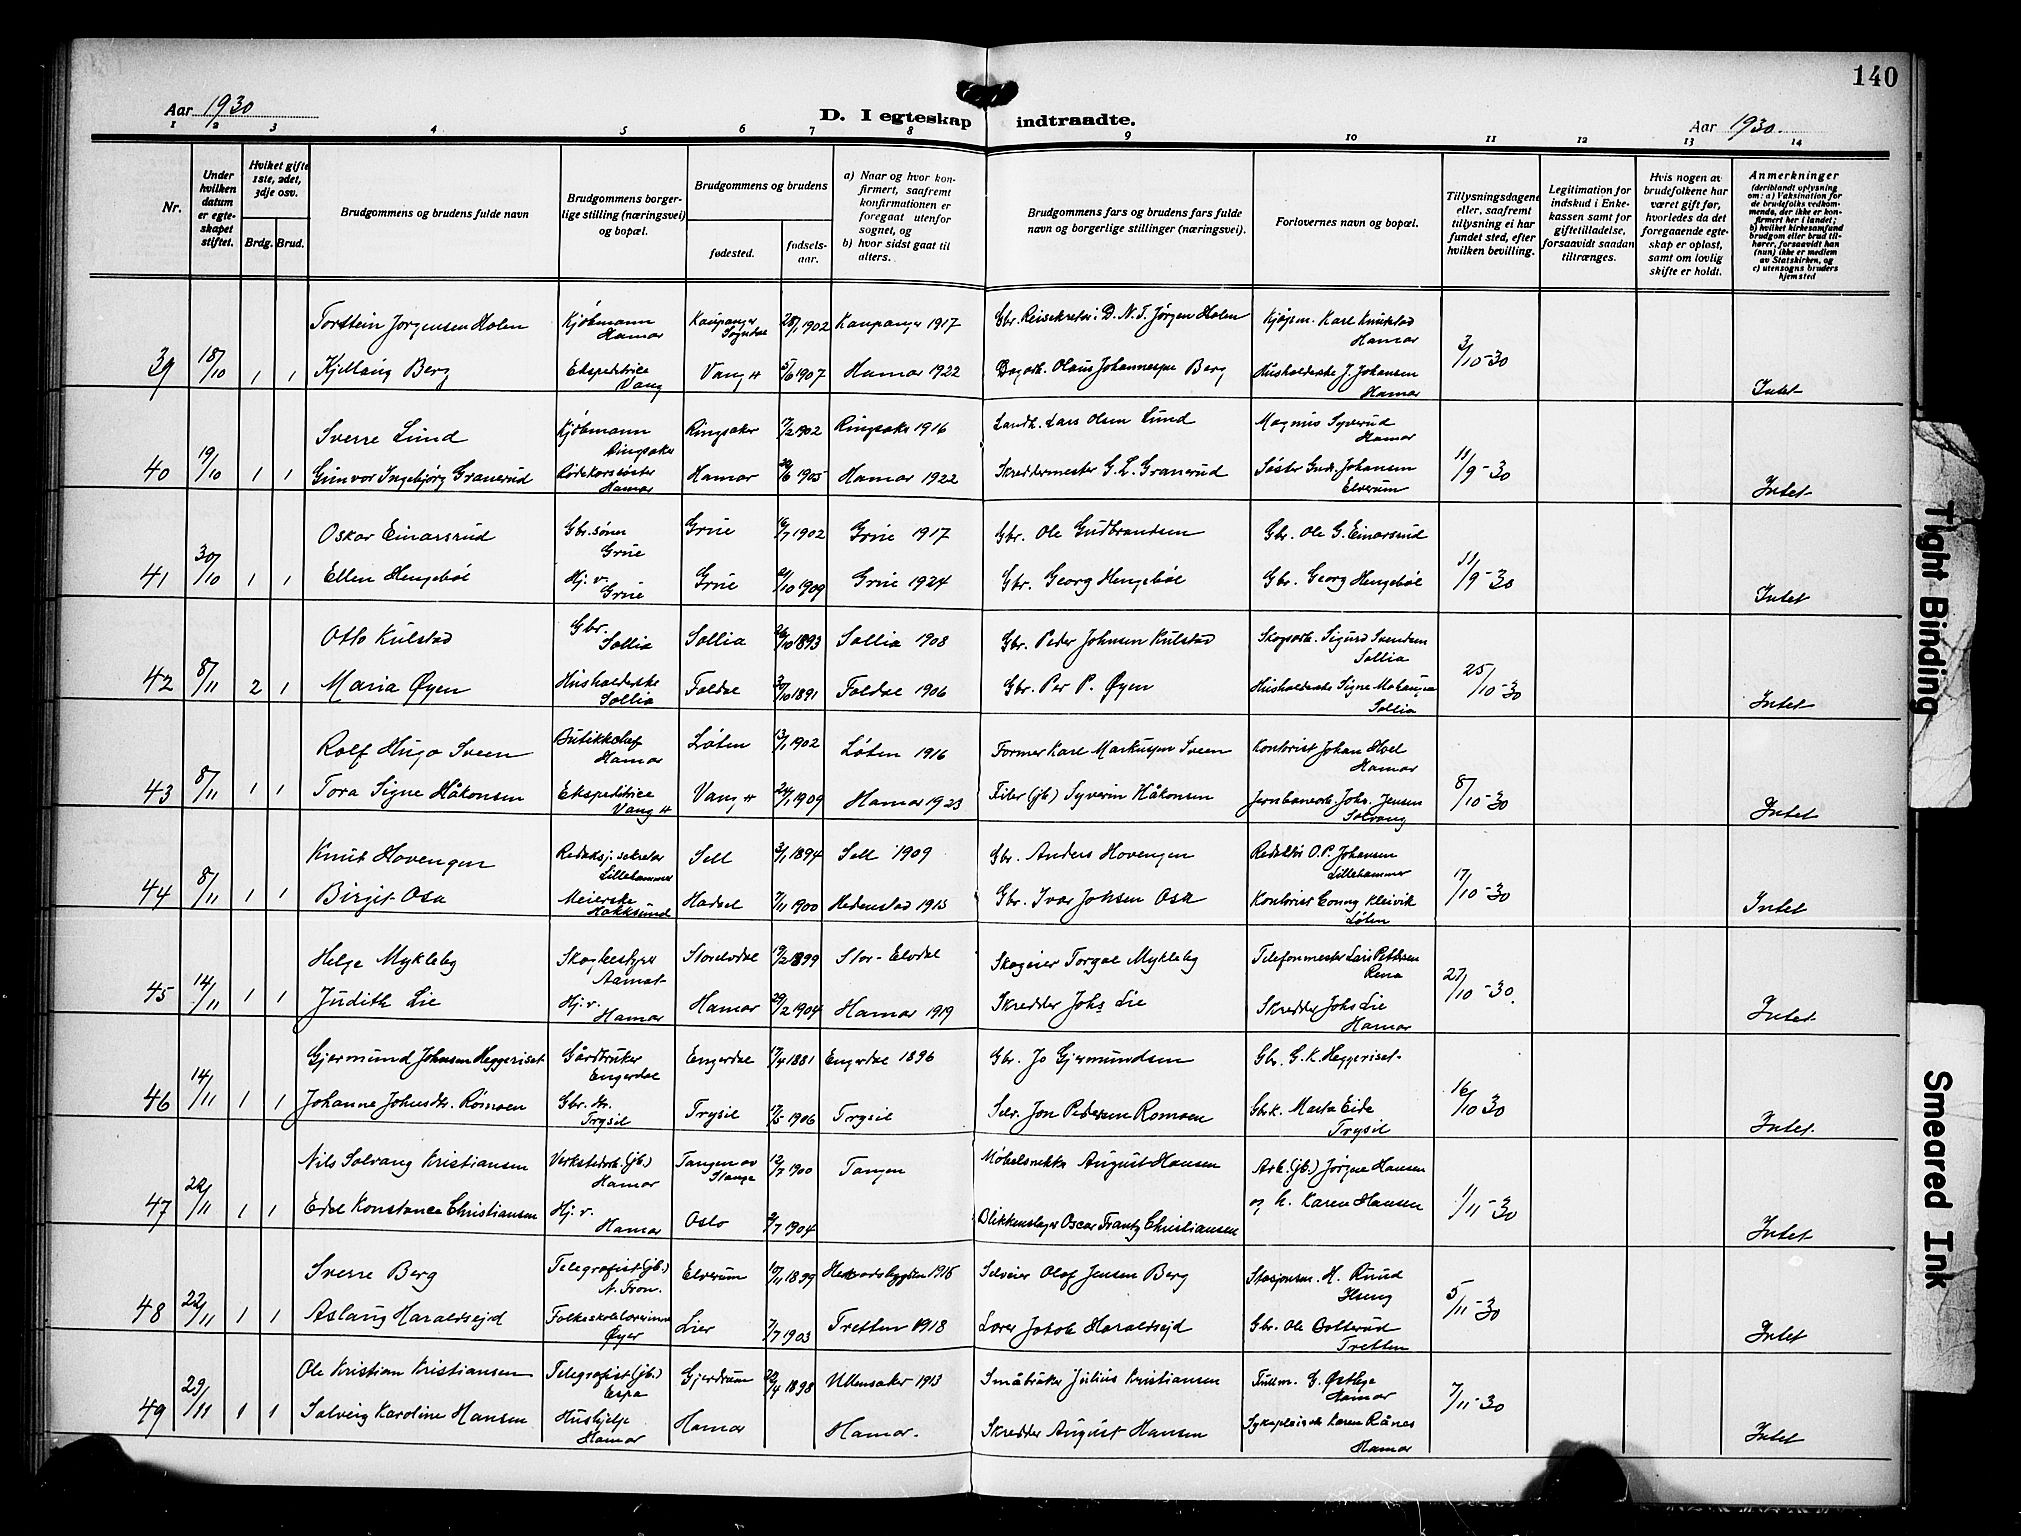 140
Aar 1930
D. I egteskap indtraadte.
Aar 1930.
1 2 3 4 5 6 7 8 9 10 11 12 13 14
Nr.
Under hvilken datum er egteskapet stiftet.
Hvilket gifte 1ste, 2det, 3dje osv.
Brdg. Brud.
Brudgommens og brudens fulde navn
Brudgommens borgerlige stilling (næringsvei) og bopæl.
Brudgommens og brudens
fødested.
fødselsaar.
a) Naar og hvor konfirmert, saafremt konfirmationen er foregaat utenfor sognet, og
b) hvor sidst gaat til alters.
Brudgommens fars og brudens fars fulde navn og borgerlige stillinger (næringsvei).
Forlovernes navn og bopæl.
Tillysningsdagene eller, saafremt tillysning ei har fundet sted, efter hvilken bevilling.
Legitimation for indskud i Enkekassen samt for giftetilladelse, forsaavidt saadan tiltrænges.
Hvis nogen av brudefolkene har været gift før, hvorledes da det foregaaende egteskap er opløst, samt om lovlig skifte er holdt.
Anmerkninger
(deriblandt oplysning om: a) Vaksination for de brudefolks vedkommende, der ikke er konfirmert her i landet; b) hvilket kirkesamfund brudgom eller brud tilhører, forsaavidt han (hun) ikke er medlem av Statskirken, og c) utensogns bruders hjemsted
Torstein Jørgensen Holen Kjøbmann Hamar Kaupanger Sogndal 28/1 1902 Kaupanger 1917 Gbr. Reisekretær i D.N.T. Jørgen Holen Kjøpm. Karl Knutstad Hamar
39 18/10 1 1 Kjellaug Berg Ekspeditrice Vang Vang H 5/6 1907 Hamar 1922 Dagarb. Olaus Johannesen Berg Husholderske J. Johansen Hamar 3/10-30 Intet
Sverre Lund Kjøbmann Ringsaker Ringsaker 17/2 1902 Ringsaker 1916 Landh. Lars Olsen Lund Magnus Syverud Hamar
40 19/10 1 1 Gunvor Ingebjørg Granerud Rødekorssøster Hamar Hamar 29/6 1905 Hamar 1922 Skreddermester G. L. Granerud Søster Gudr. Johansen Elverum 11/9-30 Intet
Oskar Einarsrud Gbr.sønn Grue Grue 16/7 1902 Grue 1917 Gbr. Ole Gudbrandsen Gbr. Ole G. Einarsrud
41 30/10 1 1 Ellen Hengebøl Hj. v. Grue Grue 21/10 1909 Grue 1924 Gbr. Georg Hengebøl Gbr. Georg Hengebøl 11/9-30 Intet
Otto Kulstad Gbr. Sollia Sollia 26/10 1893 Sollia 1908 Gbr. Peder Johnsen Kulstad Skogsarb. Sigurd Svendsen Sollia
42 8/11 2 1 Maria Øyen Husholderske Sollia Foldal 30/10 1891 Foldal 1906 Gbr. Per P. Øyen Husholderske Signe Mohaugen Sollia 25/10-30 Intet
Rolf Hugo Sveen Butikkchef Hamar Løten 13/1 1902 Løten 1916 Former Karl Markusen Sveen Kontorist Johan Hoel Hamar
43 8/11 1 1 Tora Signe Håkonsen Ekspeditrice Vang H Vang H 24/1 1909 Hamar 1923 Filer (jb) Syverin Håkonsen Jernbanearb. Johs. Jensen Solvang 8/10-30 Intet
Knut Hovengen Redaksj. sekretær Lillehammer Sell 3/1 1894 Sell 1909 Gbr. Anders Hovengen Redaktør O.P. Johansen Lillehammer
44 8/11 1 1 Birgit Osa Meierske Hokksund Hadsel 7/11 1900 Hedenstad 1915 Gbr. Ivar Johsen Osa Kontorist Conny Kleivik Løten 17/10-30 Intet
Helge Mykleby Skogbestyrer Aamot Storelvdal 19/2 1899 Stor-Elvdal Skogeier Torgal Mykleby Telefonmester Lars Pettersen Rena
45 14/11 1 1 Judith Lie Hj. v. Hamar Hamar 29/2 1904 Hamar 1919 Skredder Johs Lie Skredder Johs Lie Hamar 27/10-30. Intet
Gjermund Johnsen Heggeriset Gårdbruker Engerdal Engerdal 17/4 1881 Engerdal 1896 Gbr. Jo Gjermundsen Gbr. G.K. Heggeriset
46 14/11 1 1 Johanne Johnsdtr. Rømoen Gbr. dtr. Trysil Trysil 17/5 1906 Trysil Selv. Jon Pedersen Romoen Gbrk. Marta Eide Trysil 16/10 30 Intet.
Nils Solvang Kristiansen Verkstedarb. (jb.) Hamar Tangen av Stange 12/7 1900 Tangen Møbelsnekker August Hansen Arb. (jb.) Jørgen Hansen
47 22/11 1 1 Edel Konstance Christiansen Hj. v. Hamar Oslo 9/7 1904 Blikkenslager Oscar Frantz Christiansen og h. Karen Hansen 1/11-30 Intet
Sverre Berg Telegrafist (jb.) N. Fron. Elverum 17/11 1899 Hernadsbygden 1915 Selveier Olaf Jensen Berg Stasjonsm. H. Ruud
48 22/11 1 1 Aslaug Haraldseid Folkeskolelærerinne Øyer Lier 7/7 1903 Tretten 1918 Lærer Jakob Haraldseid Gbr. Ole Botterud Tretten 5/11-30 Intet
Ole Kristian Kristiansen Telegrafist (jb.) Espa Gjerdrum 22/4 1898 Ullensaker 1913 Småbruker Julius Kristiansen Fullm. G. Østbye Hamar
49 29/11 1 1 Solveig Karoline Hansen Hushjelp Hamar Hamar Hamar. Skredder August Hansen Sykepleierske Karen Rånes Hamar 7/11-30 Intet
Tight Binding
Smeared Ink